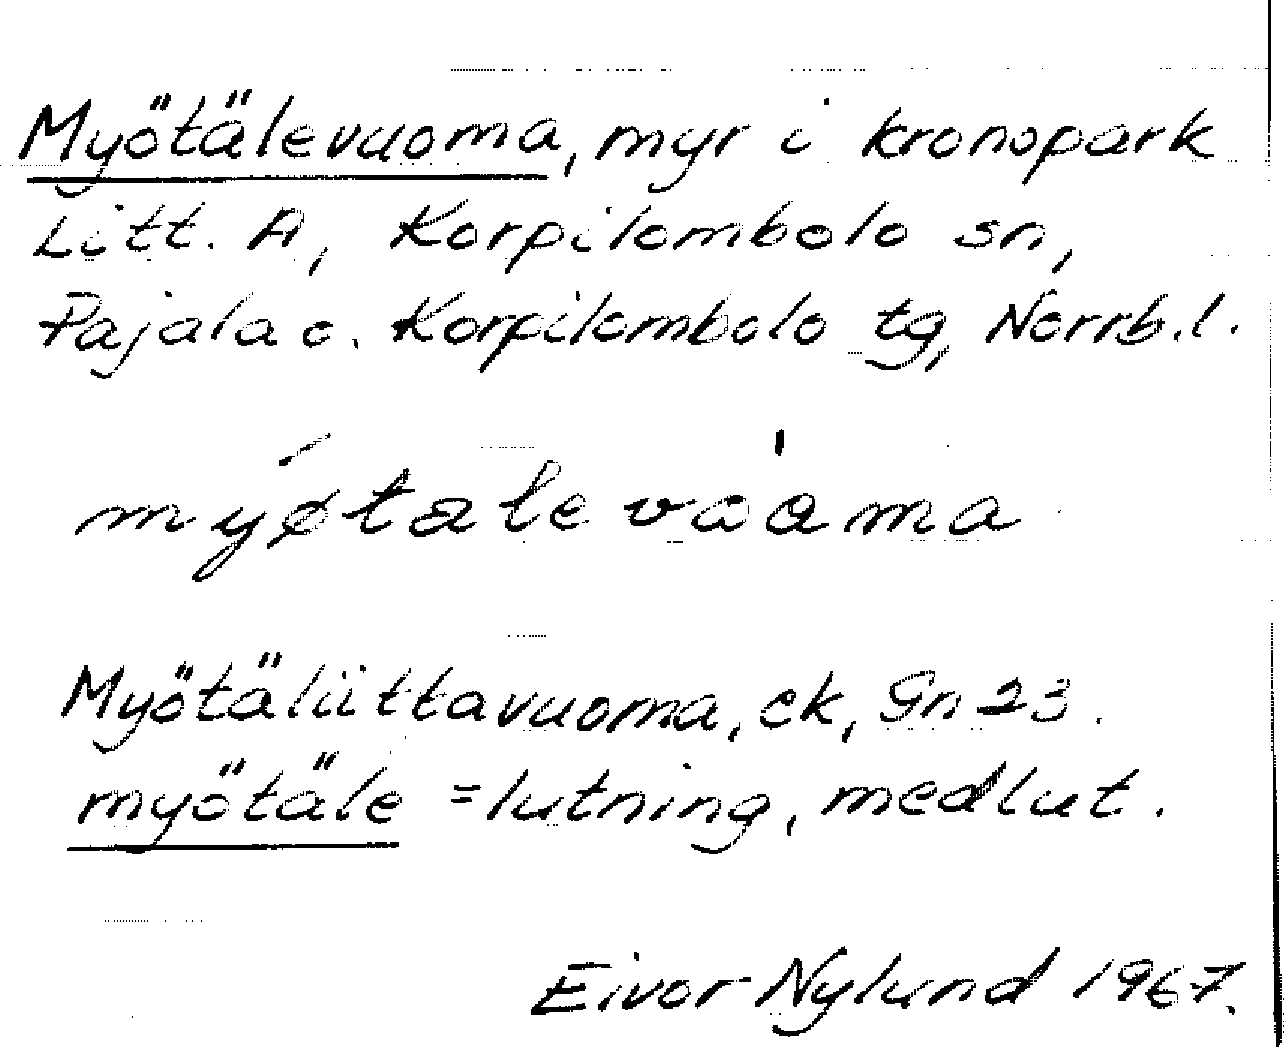 Myötälevuoma, myr i kronopark
Litt. A, Korpilombolo sn,
Pajala o. Korpilombolo tg, Norrb.l.
mýøtalevòama
Myötäliittavuoma, ek, Gn 23.
myötäle = lutning, medlut.
Eivor Nylund 1967.